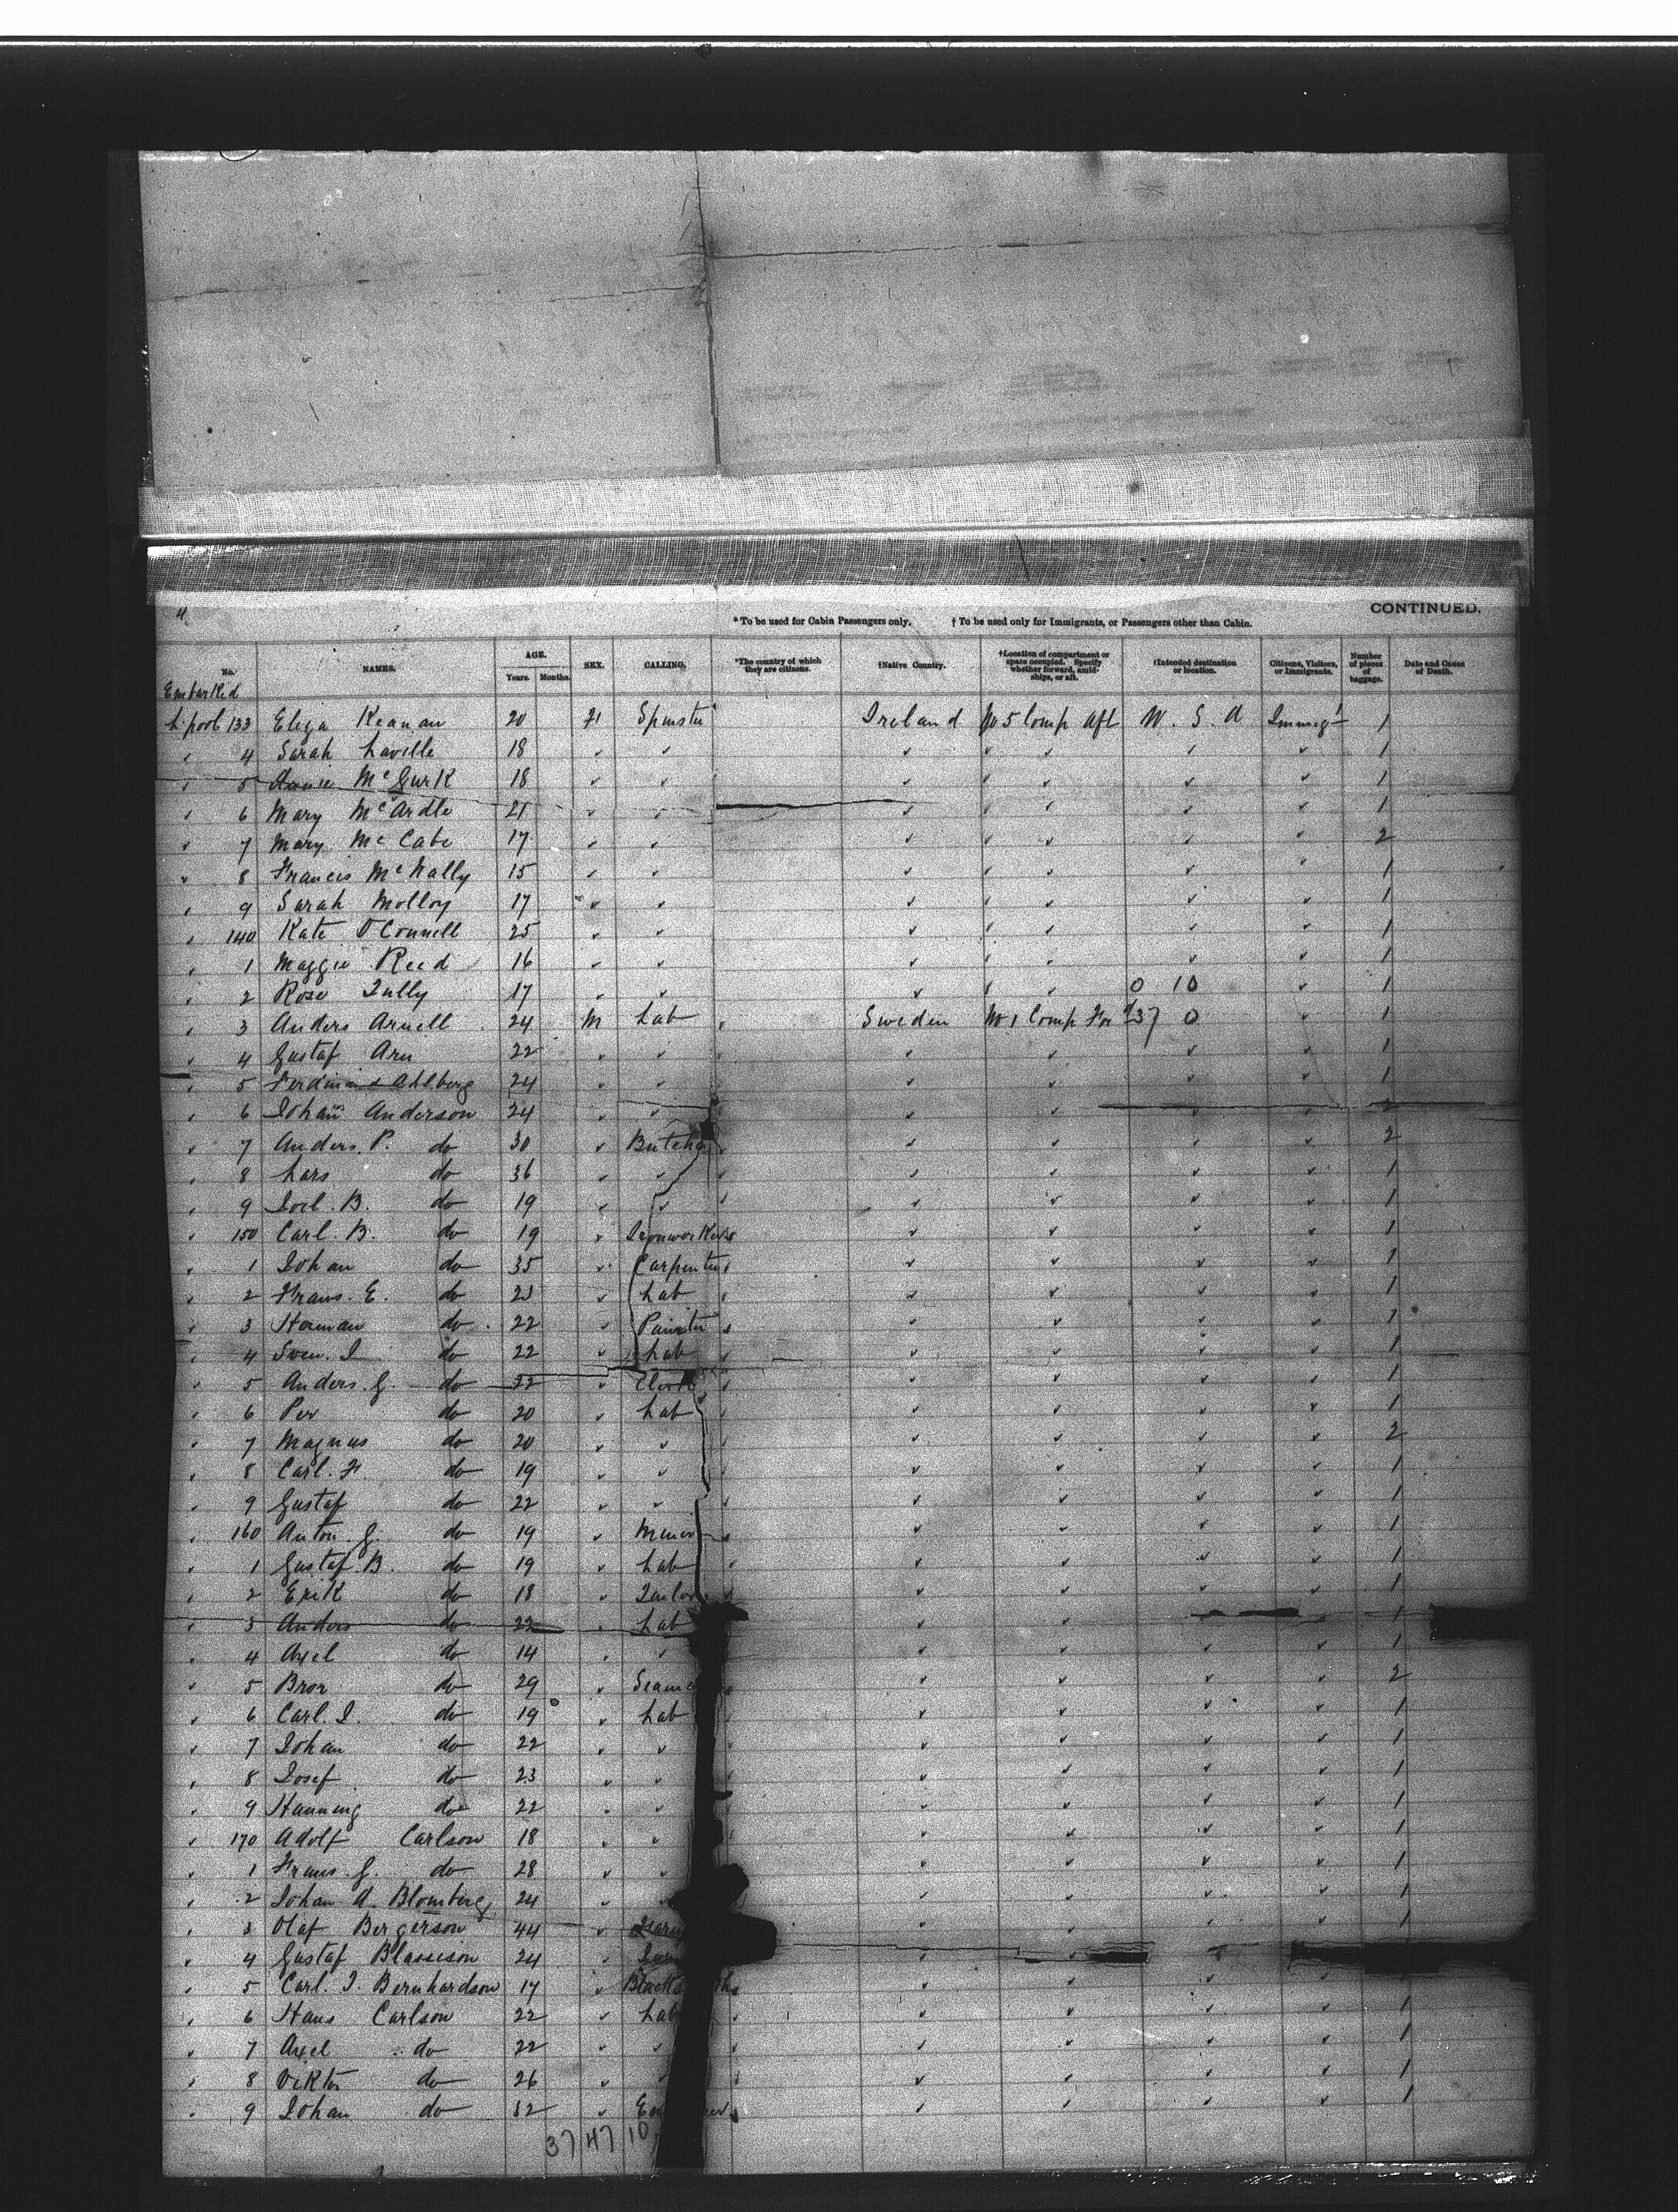 4.
CONTINUED.
*To be used for Cabin Passengers only. † To be used only for Immigrants, or Passengers other than Cabin.
No. NAMES. AGE. Years. Months. SEX. CALLING. *The country of which they are citizens. †Native Country. †Location of compartment or space occupied. Specify whether forward, amidships, or aft. †Intended destination or location. Citizens, Visitors, or Immigrants. Number of pieces of baggage. Date and Cause of Death.
Embarked
L'pool 133 Eliza Keanan 20 F Spinster Ireland No 5 Comp Aft U.S.A Immigt 1
✓ 4 Sarah Laville 18 ✓ ✓ ✓ ✓ ✓ ✓ ✓ 1
✓ 5 Annie McGurk 18 ✓ ✓ ✓ ✓ ✓ ✓ ✓ 1
✓ 6 Mary McArdle 21 ✓ ✓ ✓ ✓ ✓ ✓ ✓ 1
✓ 7 Mary McCabe 17 ✓ ✓ ✓ ✓ ✓ ✓ ✓ 2
✓ 8 Francis McNally 15 ✓ ✓ ✓ ✓ ✓ ✓ ✓ 1
✓ 9 Sarah Molloy 17 ✓ ✓ ✓ ✓ ✓ ✓ ✓ 1
✓ 140 Kate O'Connell 25 ✓ ✓ ✓ ✓ ✓ ✓ ✓ 1
✓ 1 Maggie Reed 16 ✓ ✓ ✓ ✓ ✓ ✓ ✓ 1
✓ 2 Rose Tully 17 ✓ ✓ ✓ ✓ ✓ 0 10 ✓ 1
✓ 3 Anders Arnell 24 M Lab Sweden No 1 Comp For'd 37 0 ✓ 1
✓ 4 Gustaf Arn 22 ✓ ✓ ✓ ✓ ✓ ✓ 1
✓ 5 Ferdinand Ahlberg 24 ✓ ✓ ✓ ✓ ✓ ✓ 1
✓ 6 Johan Anderson 24 ✓ ✓ ✓ ✓ ✓ ✓ 2
✓ 7 Anders. P. do 30 ✓ Butcher ✓ ✓ ✓ ✓ 2
✓ 8 Lars do 36 ✓ ✓ ✓ ✓ ✓ ✓ 1
✓ 9 Joel. B. do 19 ✓ ✓ ✓ ✓ ✓ ✓ 1
✓ 150 Carl. B. do 19 ✓ Ironworker ✓ ✓ ✓ ✓ 1
✓ 1 Johan do 35 ✓ Carpenter ✓ ✓ ✓ ✓ 1
✓ 2 Frans. E. do 23 ✓ Lab ✓ ✓ ✓ ✓ 1
✓ 3 Herman do 22 ✓ Painter ✓ ✓ ✓ ✓ 1
✓ 4 Sven. J do 22 ✓ Lab ✓ ✓ ✓ ✓ 1
✓ 5 Anders. G. do 22 ✓ Clerk ✓ ✓ ✓ ✓ 1
✓ 6 Per do 20 ✓ Lab ✓ ✓ ✓ ✓ 1
✓ 7 Magnus do 20 ✓ ✓ ✓ ✓ ✓ ✓ 2
✓ 8 Carl. F. do 19 ✓ ✓ ✓ ✓ ✓ ✓ 1
✓ 9 Gustaf do 22 ✓ ✓ ✓ ✓ ✓ ✓ 1
✓ 160 Anton. G. do 19 ✓ Miner ✓ ✓ ✓ ✓ 1
✓ 1 Gustaf. B. do 19 ✓ Lab ✓ ✓ ✓ ✓ 1
✓ 2 Erik do 18 ✓ Tailor ✓ ✓ ✓ ✓ 1
✓ 3 Anders do 22 ✓ Lab ✓ ✓ ✓ 1
✓ 4 Axel do 14 ✓ ✓ ✓ ✓ ✓ ✓ 1
✓ 5 Bror do 29 ✓ Seama ✓ ✓ ✓ ✓ 2
✓ 6 Carl. J. do 19 ✓ Lab ✓ ✓ ✓ ✓ 1
✓ 7 Johan do 22 ✓ ✓ ✓ ✓ ✓ ✓ 1
✓ 8 Josef do 23 ✓ ✓ ✓ ✓ ✓ ✓ 1
✓ 9 Hanning do 22 ✓ ✓ ✓ ✓ ✓ ✓ 1
✓ 170 Adolf Carlson 18 ✓ ✓ ✓ ✓ ✓ ✓ 1
✓ 1 Frans. G. do 28 ✓ ✓ ✓ ✓ ✓ ✓ 1
✓ 2 Johan A. Blomberg 24 ✓ ✓ ✓ ✓ ✓ ✓ 1
3 Olaf Bergerson 44 ✓ Farm ✓ ✓ ✓ ✓ 1
✓ 4 Gustaf Blassison 24 ✓ ✓ ✓
✓ 5 Carl. J. Bernhardson 17 ✓ Blacks th ✓ ✓ ✓ ✓
✓ 6 Hans Carlson 22 ✓ Lab ✓ ✓ ✓ ✓ 1
✓ 7 Axel do 22 ✓ ✓ ✓ ✓ ✓ ✓ 1
✓ 8 Viktor do 26 ✓ ✓ ✓ ✓ ✓ ✓ 1
✓ 9 Johan do 32 ✓ En eer ✓ ✓ ✓ ✓ 1
37 47 10